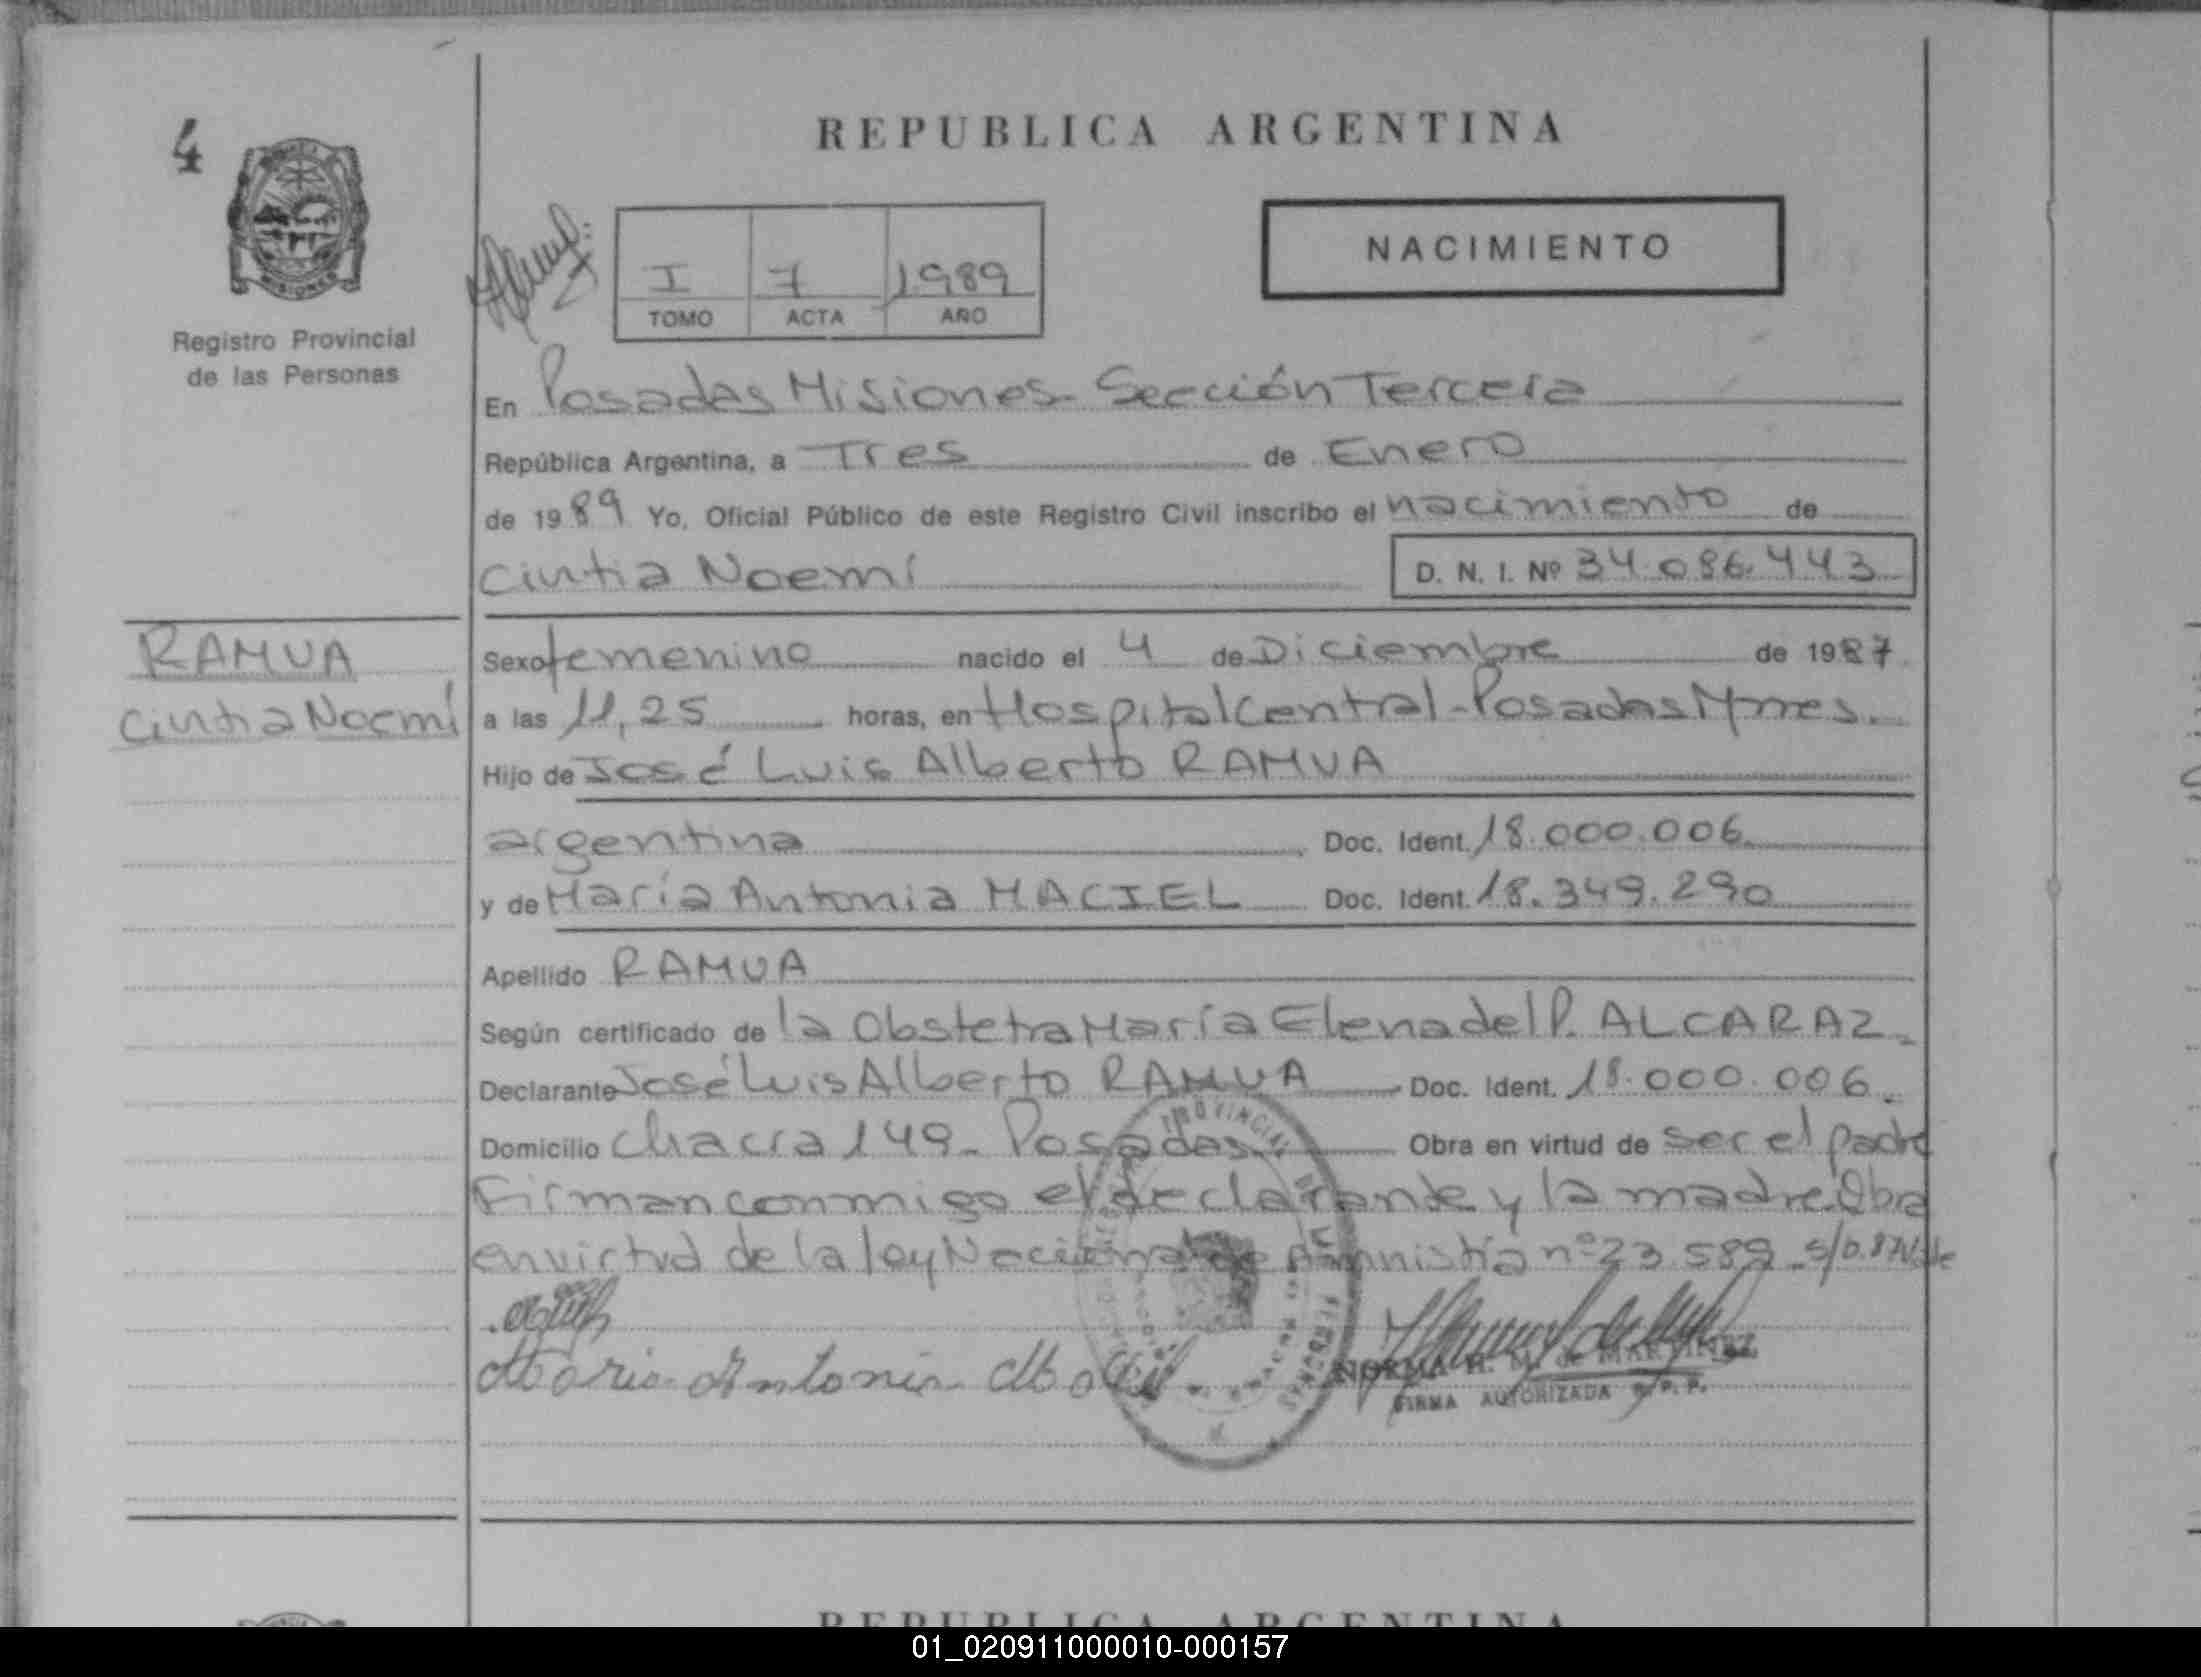 4
REPUBLICA ARGENTINA
NACIMIENTO
I 7 1989
TOMO ACTA AÑO
MISIONES
Registro Provincial
de las Personas
En Posadas Misiones - Sección Tercera
República Argentina, a Tres de Enero
de 1989 Yo, Oficial Público de este Registro Civil inscribo el nacimiento de
Cintia Noemí D. N. I. Nº 34.086.443
RAMUA
Cintia Noemí
Sexo femenino nacido el 4 de Diciembre de 1987
a las 11,25 horas, en Hospital Central - Posadas Mnes.
Hijo de José Luis Alberto RAMUA
argentina Doc. Ident. 18.000.006
y de María Antonia MACIEL Doc. Ident. 18.349.290
Apellido RAMUA
Según certificado de la Obstetra María Elena del P. ALCARAZ
Declarante José Luis Alberto RAMUA Doc. Ident. 18.000.006
Domicilio Chacra 149 - Posadas Obra en virtud de ser el padre
Firman conmigo el declarante y la madre. Obra
en virtud de la ley Nacional de Amnistía nº 23.589
Maria Antonia Maciel
NORMA H. M. de MARTINEZ
FIRMA AUTORIZADA R. P. P.
PROVINCIAL
REPUBLICA ARGENTINA
01_020911000010-000157